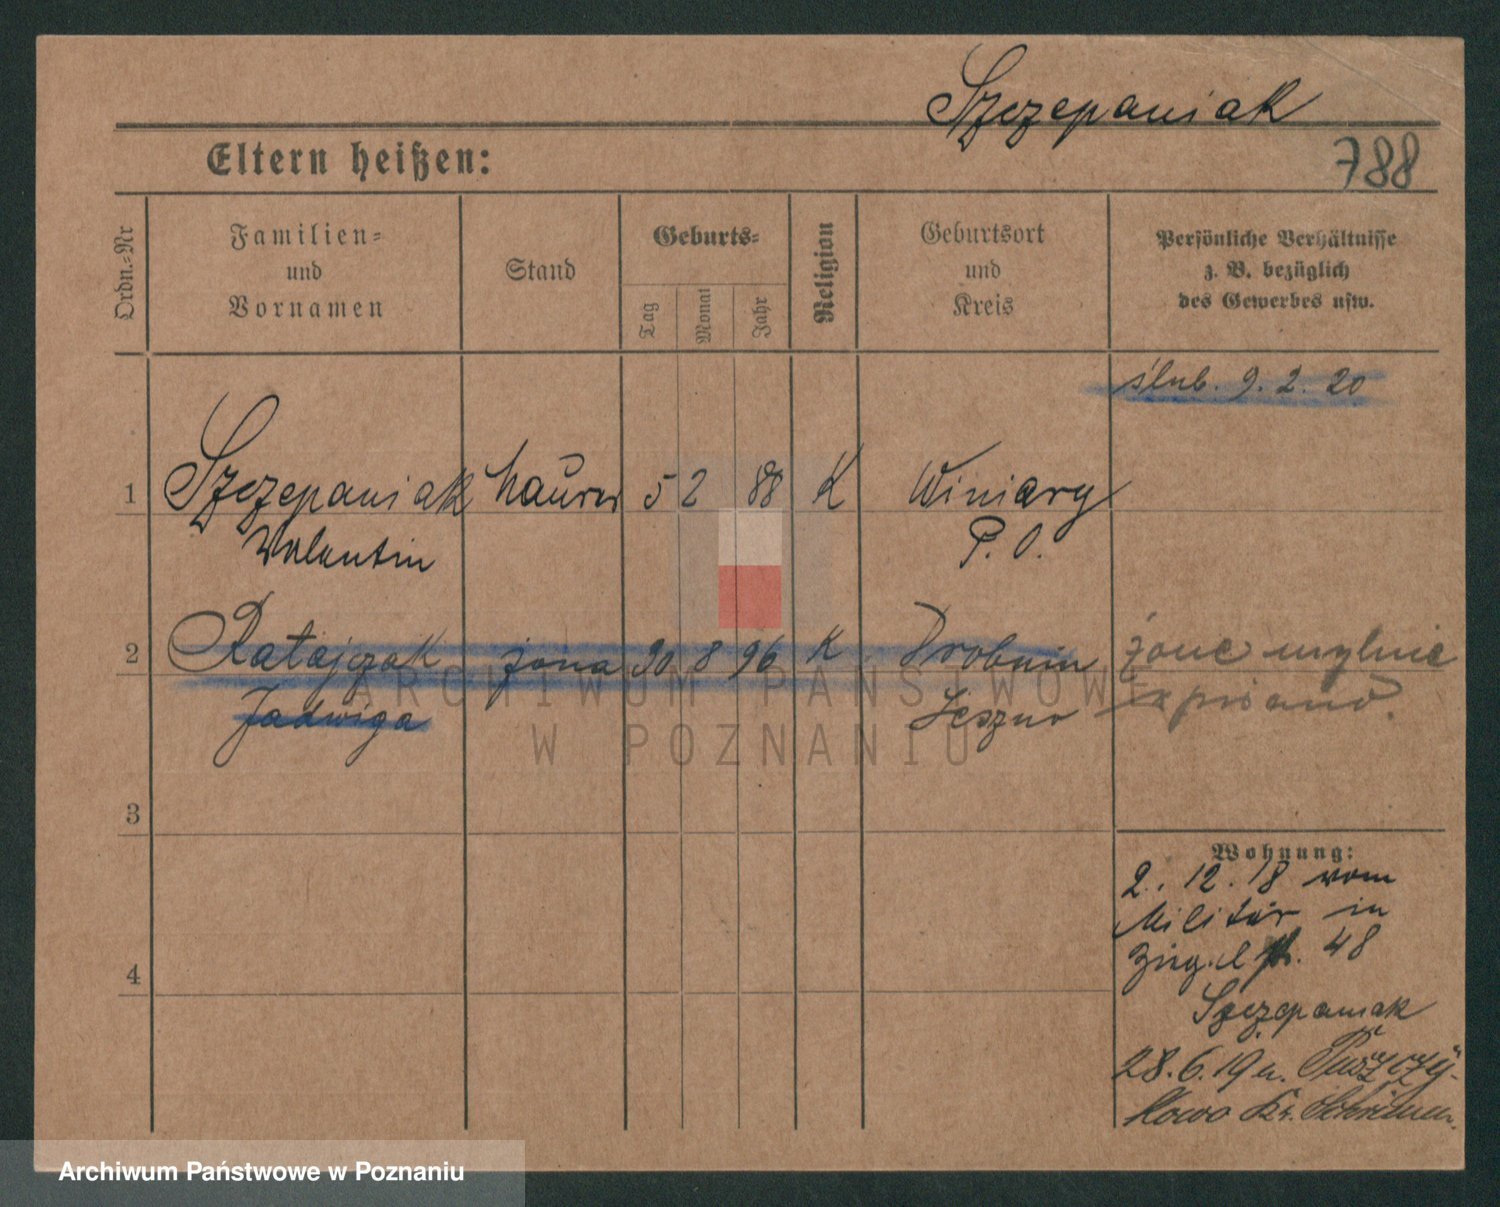 Szczepaniak
Eltern heißen:
788
Ordn.-Nr
Familien-
und
Vornamen
Stand
Geburts-
Tag
Monat
Jahr
Religion
Geburtsort
und
Kreis
Persönliche Verhältnisse
z. B. bezüglich
des Gewerbes usw.
ślub. 9. 2. 20
1 Szczepaniak Maurer 5 2 88 K Winiary
Valentin P. O.
2 Ratajczak żona 30 8 96 K Drobnin żonę mylnie
Jadwiga Leszno zapisano.
ARCHIWUM PAŃSTWOWE
W POZNANIU
3
4
Wohnung:
2. 12. 18 vom
Militär in
Ziegelstr. 48
Szczepaniak
28. 6. 19 n. Puszczy-
kowo Kr. Schrimm.
Archiwum Państwowe w Poznaniu